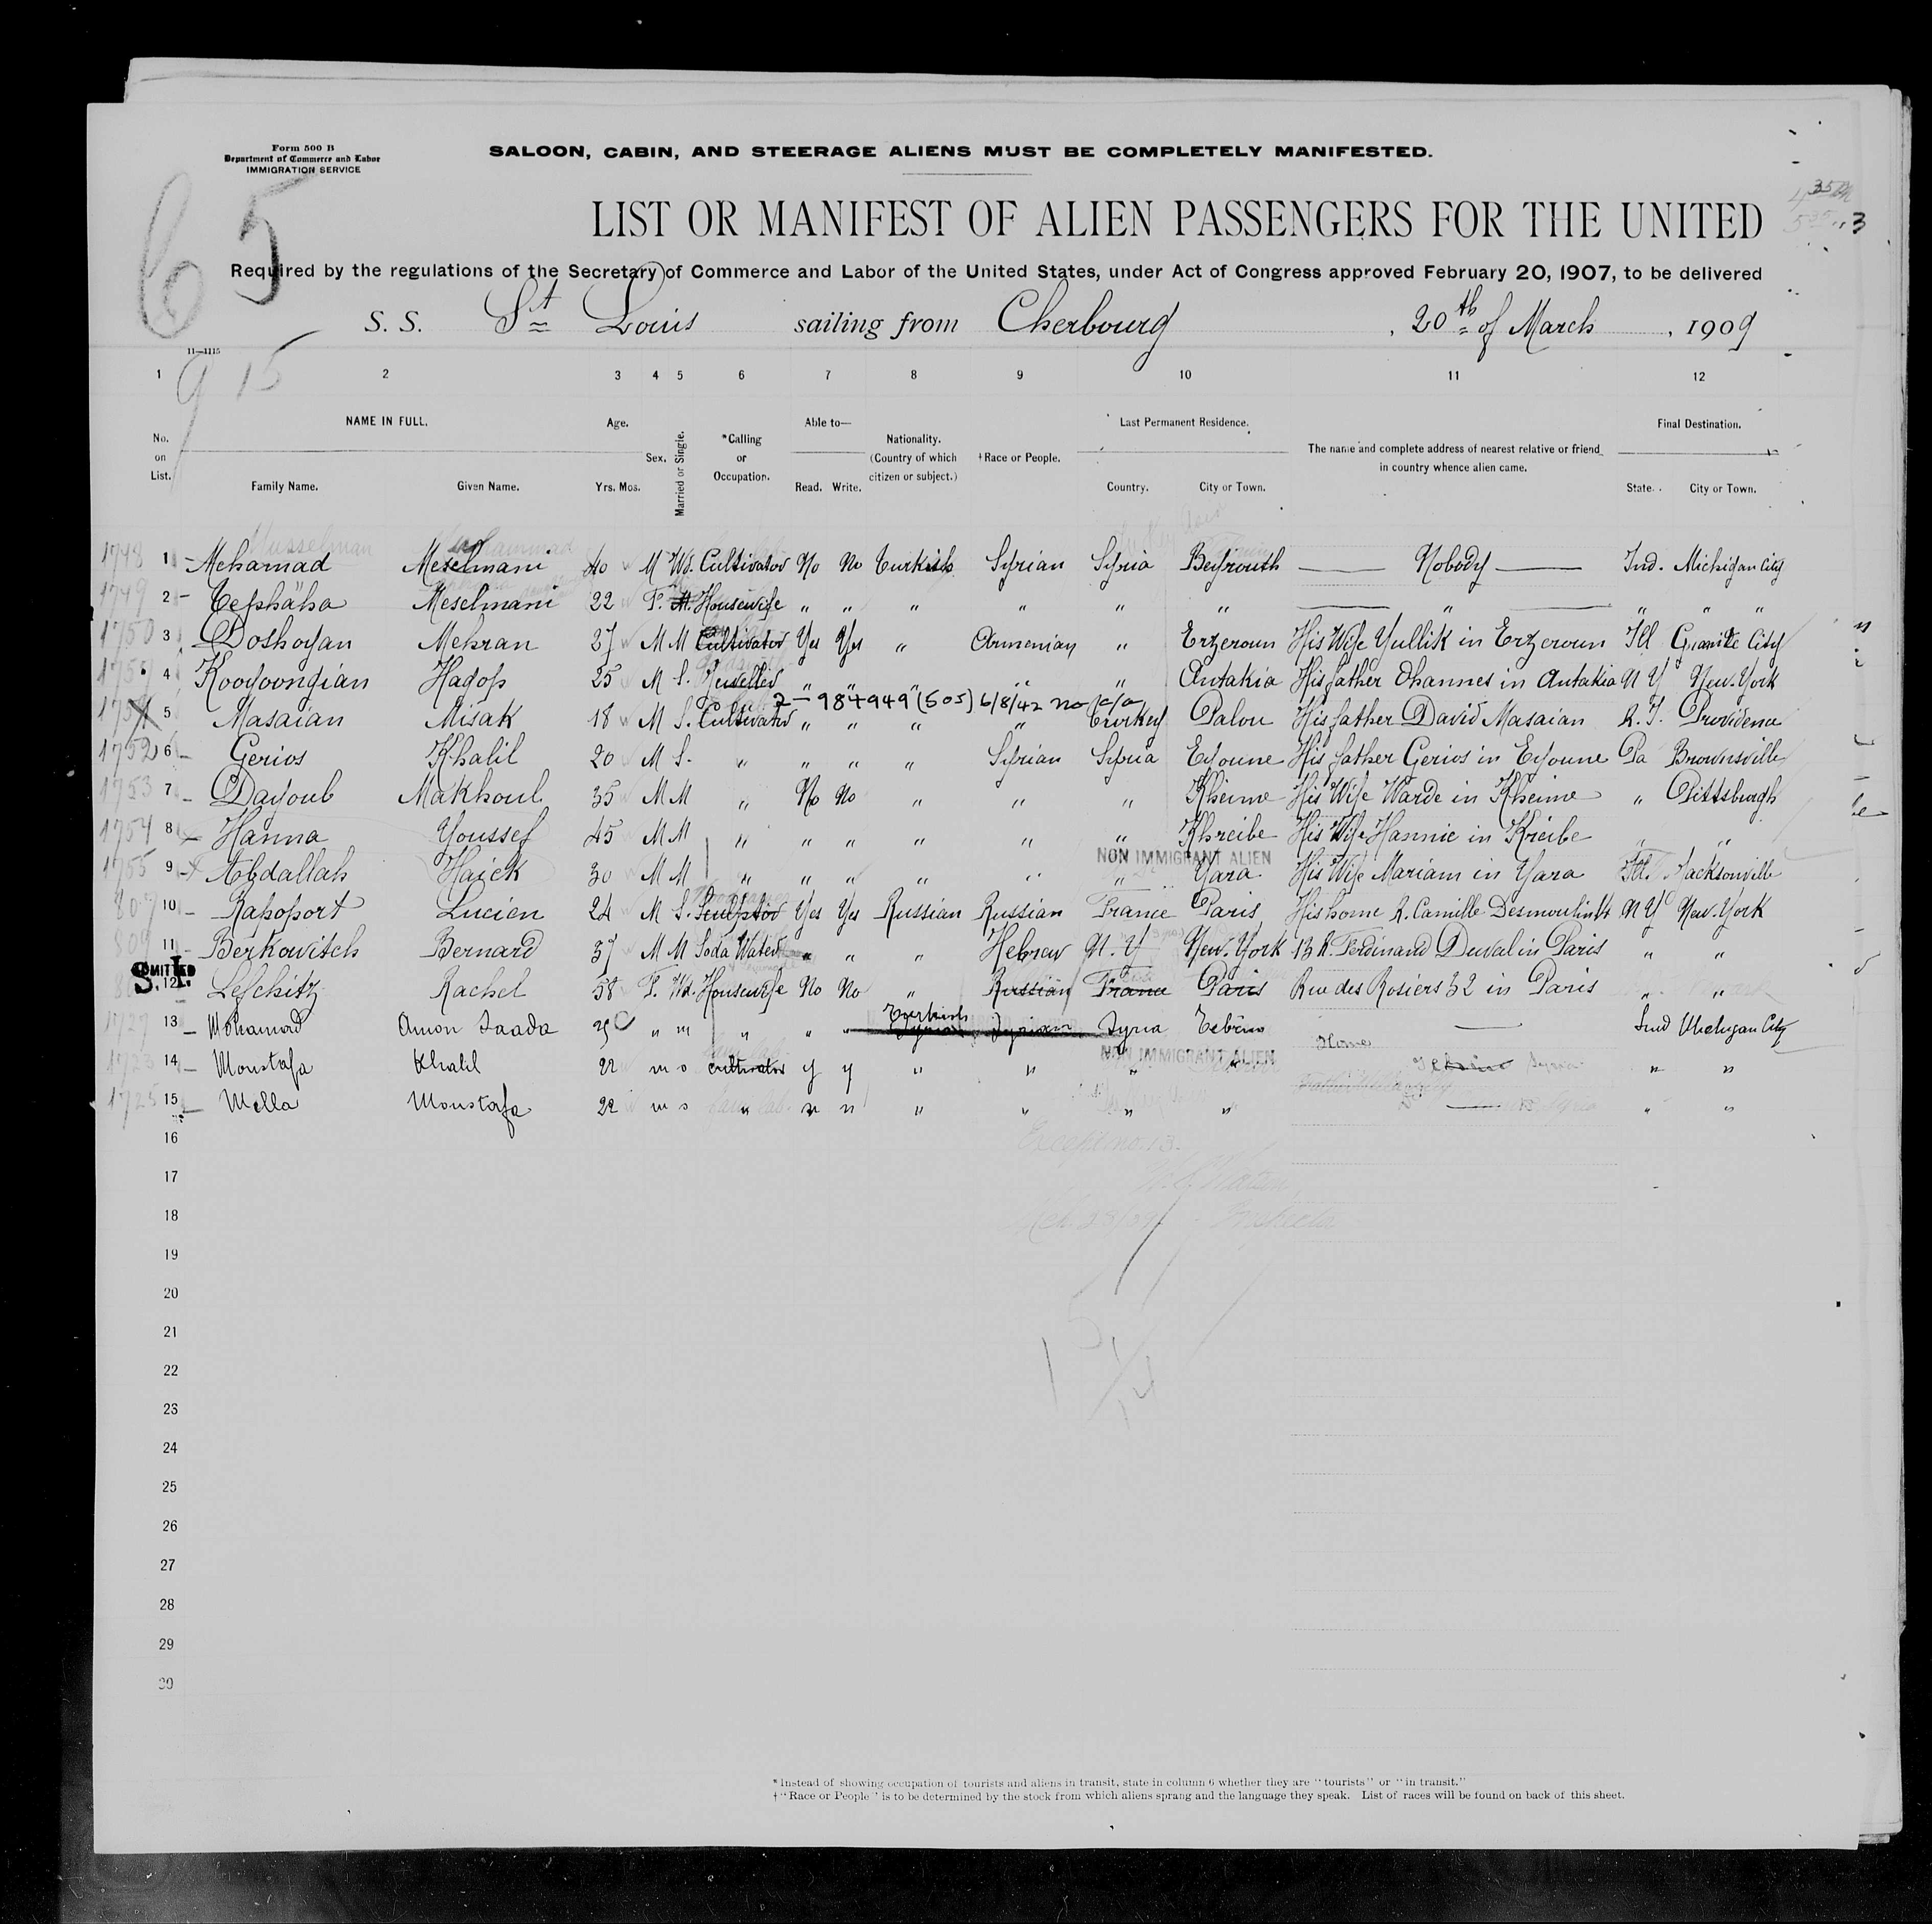 Form 500 B
Department of Commerce and Labor
IMMIGRATION SERVICE
SALOON, CABIN, AND STEERAGE ALIENS MUST BE COMPLETELY MANIFESTED.
65
LIST OR MANIFEST OF ALIEN PASSENGERS FOR THE UNITED
Required by the regulations of the Secretary of Commerce and Labor of the United States, under Act of Congress approved February 20, 1907, to be delivered
S. S. St Louis sailing from Cherbourg, 20th of March, 1909
11—1115
9 15
1 2 3 4 5 6 7 8 9 10 11 12
No. on List. NAME IN FULL. Family Name. Given Name. Age. Yrs. Mos. Sex. Married or Single. *Calling or Occupation. Able to— Read. Write. Nationality. (Country of which citizen or subject.) †Race or People. Last Permanent Residence. Country. City or Town. The name and complete address of nearest relative or friend in country whence alien came. Final Destination. State. City or Town.
Musselman Mohammad
1748 1 - Mehamad Meselmani 40 M Wd. Cultivator No No Turkish Syrian Syria Beyrouth — Nobody — Ind. Michigan City
1749 2 - Tefhäha Meselmani 22 F. M. Housewife " " " " " " — " — " " "
1750 3 Doshoyan Mehran 37 M M Cultivator Yes Yes " Armenian " Erzeroun His Wife Yullik in Erzeroun Ill Granite City
1751 4 Kooyoongian Hagop 25 M S. " " " " " Antakia His father Ohannes in Antakia N Y New-York
2-984949 (505) 6/8/42 no c/a
5 Masaian Misak 18 M S. Cultivator " " " " Turkey Palou His father David Masaian R. I. Providence
1752 6 - Gerios Khalil 20 M S. " " " " Syrian Syria Eyoune His father Gerios in Eyoune Pa Brownsville
1753 7 - Dayoub Makhoul 35 M M " No No " " " Kheime His Wife Warde in Kheime " Pittsburgh
1754 8 - Hanna Youssef 45 M M " " " " " " Khreibe His Wife Hannie in Kreibe " "
NON IMMIGRANT ALIEN
1755 9 Abdallah Haick 30 M M " " " " " " Yara His Wife Mariam in Yara Ill. Jacksonville
10 - Rapoport Lucien 24 M S. Sculptor Yes Yes Russian Russian France Paris His home R. Camille Desmoulins N Y New-York
809 11 - Berkowitch Bernard 37 M M Soda Water " " " Hebrew N. Y New-York 13 R. Ferdinand Duval in Paris " "
ADMITTED
S. I. 12 Lefchitz Rachel 58 F. Wd. Housewife No No " Russian France Paris Rue des Rosiers 32 in Paris " "
Turkish
1727 13 - Mohamad Amon Saada " m " " " Syrian Syrian Syria Tebrin — Ind Michigan City
Home
NON IMMIGRANT ALIEN
1723 14 - Moustafa Khalil 22 m s cultivator y y " " " " Syria " "
1725 15 - Mella Moustafa 22 m s " n n " " " " " "
16
Except no. 13.
17
18
19
20
21
22
23
24
25
26
27
28
29
30
*Instead of showing occupation of tourists and aliens in transit, state in column 6 whether they are "tourists" or "in transit."
†"Race or People" is to be determined by the stock from which aliens sprang and the language they speak. List of races will be found on back of this sheet.